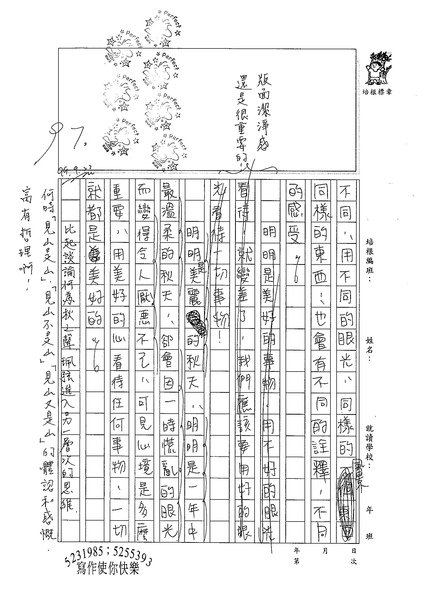 培根標章
日次
月
年第
培根編班：
姓名：
就讀學校：
年
班
不同，用不同的眼光，同樣的
同樣的東西，也會有不同的詮釋，不同
的感受。
明明是美好的事物，用不好的眼光
看待，就變差了，我們應該要用好的眼
光看待一切事物！
明明是美麗的秋天，明明是一年中
最溫柔的秋天，卻會因一時慌亂的眼光
而變得令人厭惡不已，可見心境是多麼
重要，用美好的心看待任何事物，一切
就都是美好的。
比起談論何為秋之藍，珮弦進入另一層次的思維
何時「見山是山」，「見山不是山」，「見山又是山」的體認和感慨，
富有哲理啊！
版面潔淨感
還是很重要的！
perfect
perfect
perfect
perfect
perfect
perfect
97.
5231985；5255393
寫作使你快樂